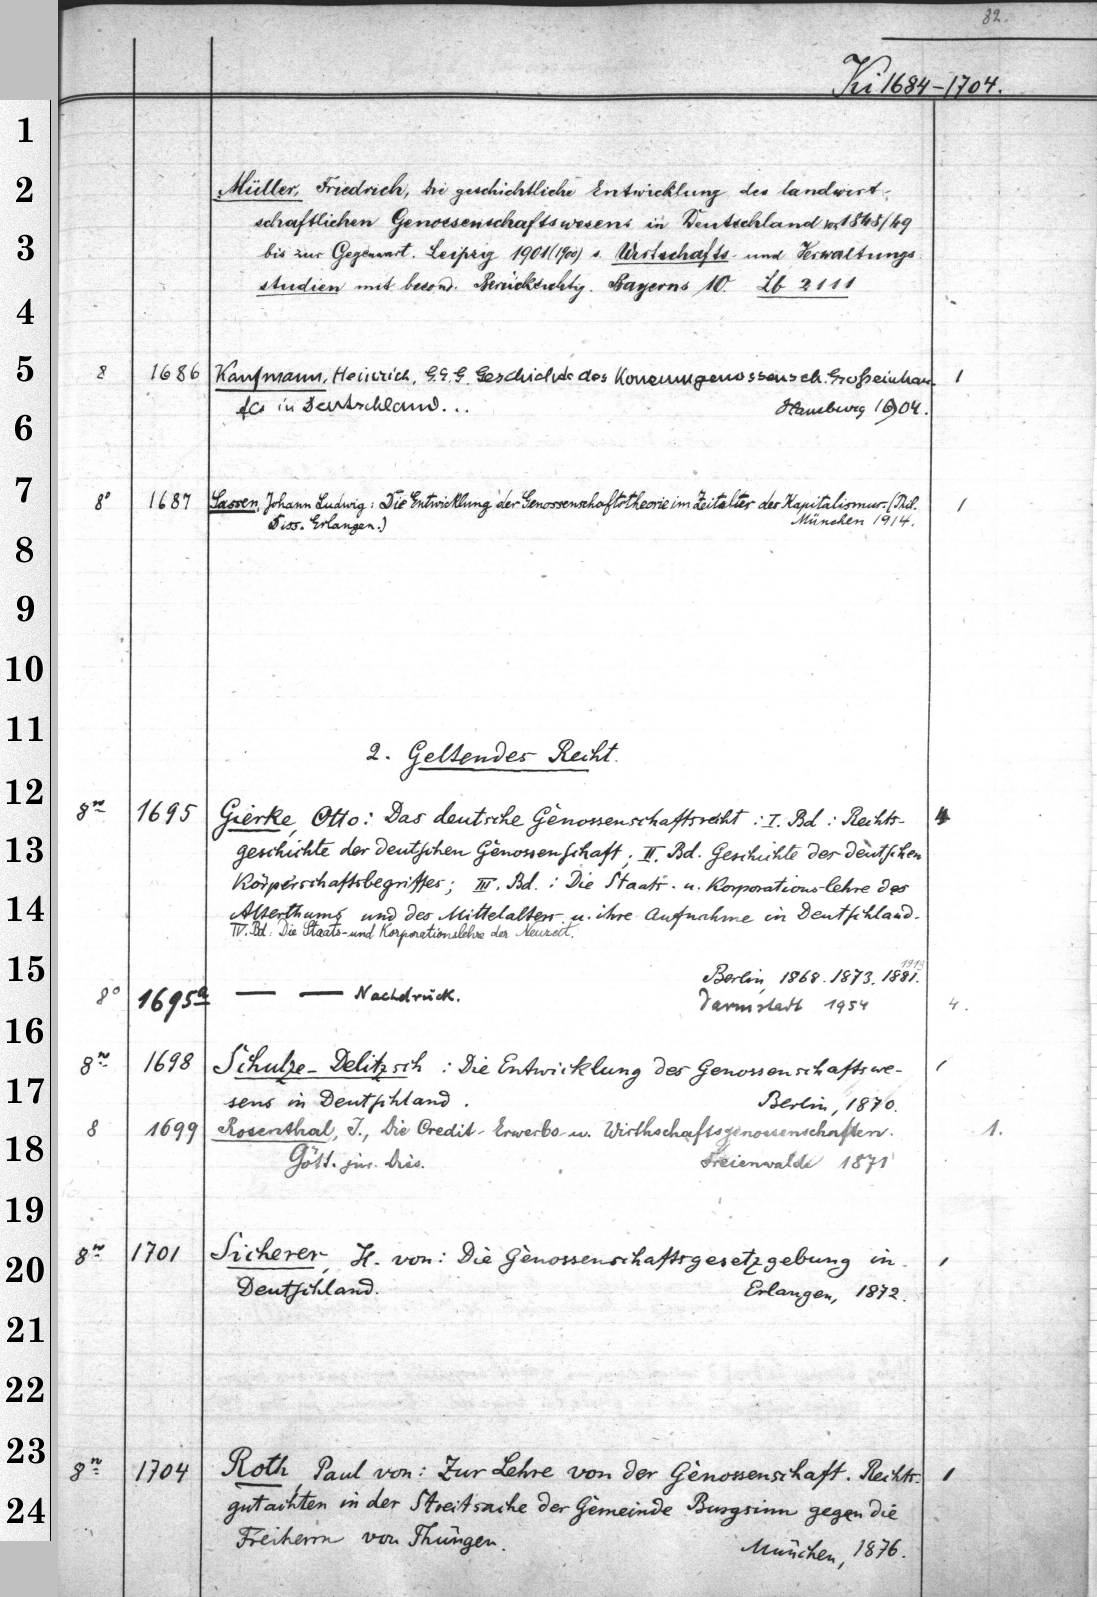 82.
Ki 1684-1704.
1
2
Müller, Friedrich, Die geschichtliche Entwicklung des landwirt-
schaftlichen Genossenschaftswesens in Deutschland von 1848/49
3
bis zur Gegenwart. Leipzig 1901 (1900) s. Wirtschafts- und Verwaltungs-
studien mit besond. Berücksichtig. Bayerns 10. Lb 2111
4
5
8 1686 Kaufmann, Heinrich, G.E.G. Geschichte des Konsumgenossensch. Großeinkau- 1
fes in Deutschland... Hamburg 1904.
6
7
8° 1687 Sassen, Johann Ludwig: Die Entwicklung der Genossenschaftstheorie im Zeitalter des Kapitalismus. (Phil. 1
Diss. Erlangen.) München 1914.
8
9
10
11
2. Geltendes Recht.
12
8° 1695 Gierke, Otto: Das deutsche Genossenschaftsrecht: I. Bd: Rechts- 4
13
geschichte der deutschen Genossenschaft; II. Bd. Geschichte des deutschen
Körperschaftsbegriffes; III. Bd.: Die Staats- u. Korporationslehre des
14
Alterthums und des Mittelalters u. ihre Aufnahme in Deutschland.
IV. Bd: Die Staats- und Korporationslehre der Neuzeit.
15
Berlin, 1868. 1873. 1881. 1913
8° 1695a — — Nachdruck. Darmstadt 1954 4.
16
8° 1698 Schulze-Delitzsch: Die Entwicklung des Genossenschaftswe- 1
17
sens in Deutschland. Berlin, 1870.
8 1699 Rosenthal, J., Die Credit- Erwerbs- u. Wirthschaftsgenossenschaften. 1.
18
Gött. jur. Diss. Freienwalde 1871
19
8° 1701 Sicherer, H. von: Die Genossenschaftsgesetzgebung in 1
20
Deutschland. Erlangen, 1872.
21
22
23
8° 1704 Roth, Paul von: Zur Lehre von der Genossenschaft. Rechts- 1
24
gutachten in der Streitsache der Gemeinde Burgsinn gegen die
Freiherrn von Thüngen. München, 1876.